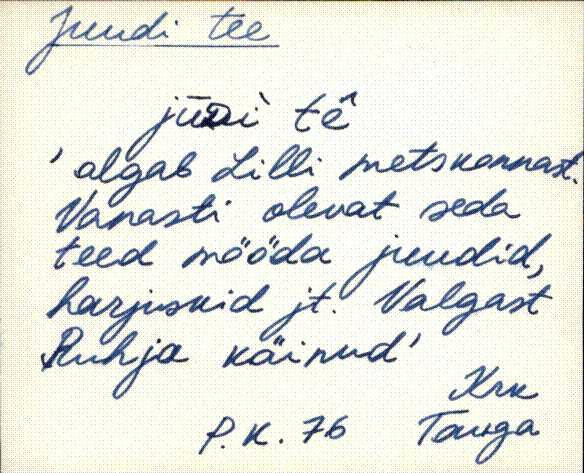 Juudi tee
jūDì tê
'algab Lilli metskonnast.
Vanasti olevat seda
teed mööda juudid,
harjuskid jt. Valgast
Ruhja käinud'
Krk
P.K. 76 Tauga